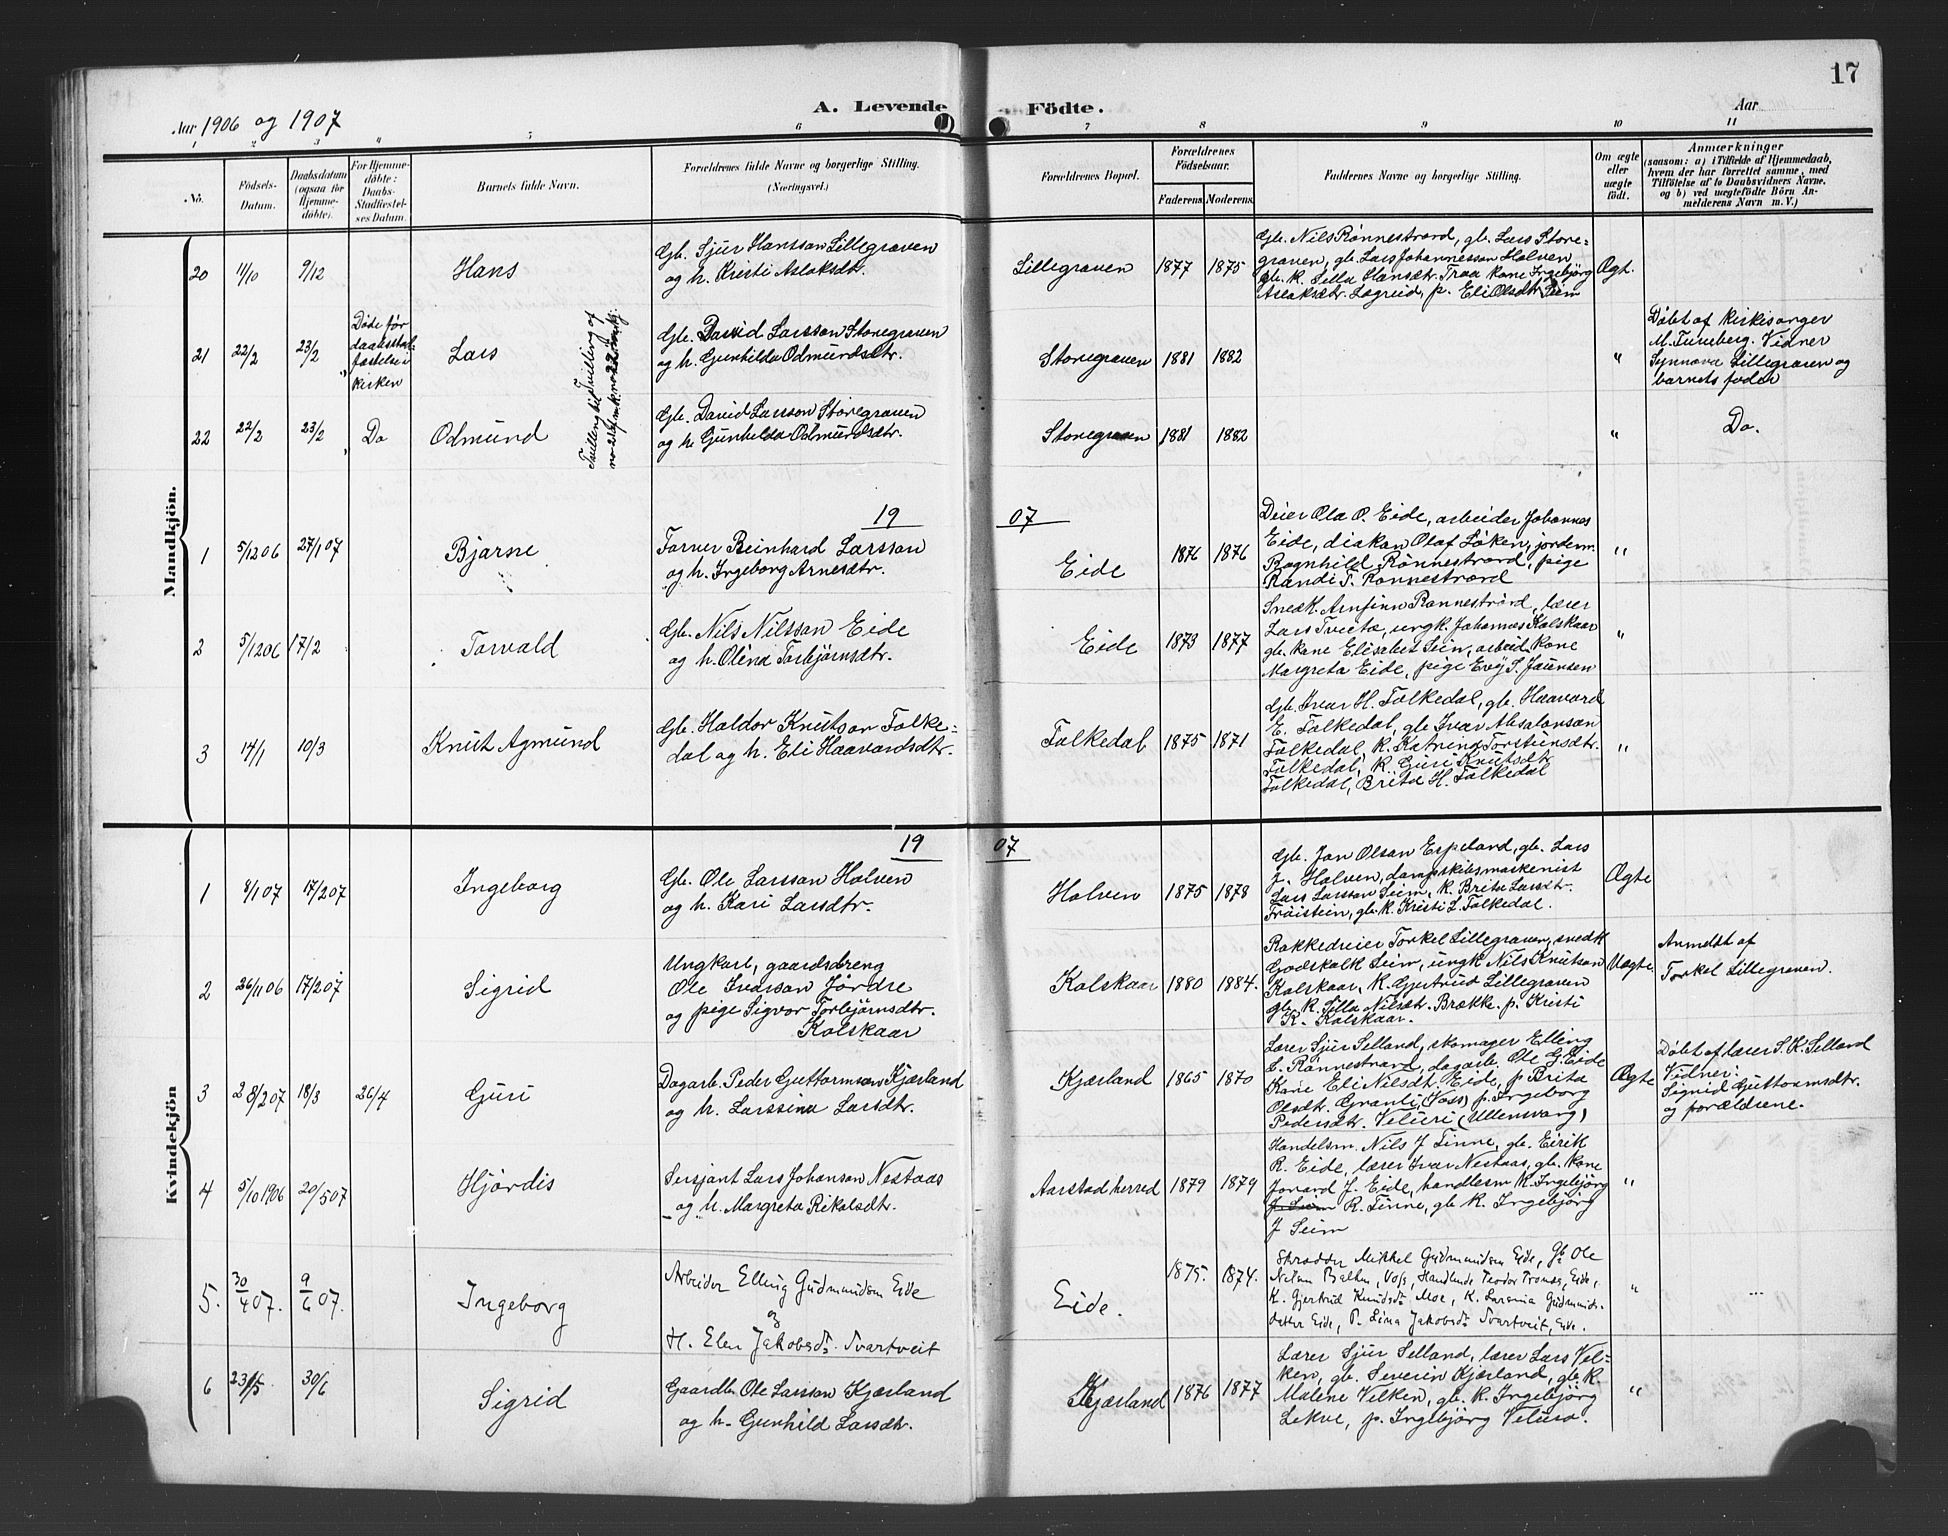 17
A. Levende Födte.
Aar 1906 og 1907
Aar
1 2 3 4 5 6 7 8 9 10 11
No.
Födsels-Datum.
Daabsdatum (ogsaa for Hjemmedöbte).
For Hjemmedöbte: Daabs-Stadfæstelses Datum.
Barnets fulde Navn.
Forældrenes fulde Navne og borgerlige Stilling. (Næringsvei.)
Forældrenes Bopæl.
Forældrenes Födselsaar.
Faderens Moderens
Faddernes Navne og borgerlige Stilling.
Om ægte eller uægte födt.
Anmærkninger
(saasom: a) i Tilfælde af Hjemmedaab, hvem der har forrettet samme, med Tilföielse af to Daabsvidners Navne, og b) ved uægtefödte Börn Anmelderens Navn m. V.)
Mandkjön.
20 11/10 9/12 Hans
Gb. Sjur Hansson Lillegraven
og h. Kristi Aslaksdtr.
Lillegraven 1877 1875
Gb. Nils Rønnestrand, gb. Lars Store-
graven, gb. Lars Johannesson Holven
gb. k. Silla Hansdtr. Traa kone Ingebjörg
Aslaksdtr. Lægreid, p. Eli Olsdtr. Seim
Ægt.
21 22/2 23/2
Døde før
daabsstad-
fæstelse i
kirken
Lars
Tvilling til Tvilling af
no 21 mk. no 22 mk.
Gb. David Larsson Storegraven
og h. Gunhilda Odmundsdtr.
Storegraven 1881 1882 "
Döbt af kirkesanger
M. Furuberg. Vidner
Synnøva Lillegraven og
barnets fader
22 22/2 23/2 Do Odmund
Gb. David Larsson Storegraven
og h. Gunhilda Odmundsdtr.
Storegraven 1881 1882 " Do.
1907
1 5/12 06 27/1 07 Bjarne
Farver Reinhard Larsson
og h. Ingeborg Arnesdtr.
Eide 1876 1876
Deier Ola O. Eide, arbeider Johannes
Eide, diakon Olaf Løken, jordm.
Ragnhild Rønnestrand, pige
Randi T. Rønnestrand
"
2 5/12 06 17/2 Torvald
Gb. Nils Nilsson Eide
og h. Olina Torbjørnsdtr.
Eide 1873 1877
Snedk. Arnfinn Rønnestrand, lærer
Lars Tveito, ungk. Johannes Kolskaar
gb. kone Elisabet Seim, arbeid. kone
Margreta Eide, pige Evy S. Jaunsen
"
3 14/1 10/3 Knut Agmund
Gb. Haldor Knutson Folke-
dal og h. Eli Haavardsdtr.
Folkedal 1875 1871
Gb. Ivar H. Folkedal, gb. Haavard
E. Folkedal, gb. Ivar Absalonsen
Folkedal, k. Katrina Torsteinsdtr.
Folkedal, k. Guri Knutsdtr.
Folkedal, Brita H. Folkedal
"
Kvindekjön
1907
1 8/1 07 17/2 07 Ingeborg
Gb. Ole Larsson Holven
og h. Kari Larsdtr.
Holven 1875 1878
Gb. Jon Olsan Espeland, gb. Lars
J. Holven, dampskibsmaskenist
Lars Larsson Seim, k. Brita Larsdtr.
Trøistein, gb. k. Kristi L. Folkedal.
Ægte
2 26/11 06 17/2 07 Sigrid
Ungkarl, gaardsdreng
Ole Ivarsson Jordre
og pige Sigvor Torbjørnsdtr.
Kolskaar
Kolskaar 1880 1884.
Rokkedreier Torkel Lillegraven, snedk
Godskalk Seim, ungk. Nils Knutson
Kolskaar, k. Gjertrud Lillegraven
gb. k. Silla Nilsdtr. Brække. p. Kristi
K. Kolskaar.
Uægte
Anmeldt af
Torkel Lillegraven.
3 28/2 07 18/3 26/4 Guri
Dagarb. Peder Guttormson Kjærland
og h. Larssina Larsdtr.
Kjærland 1865 1870
Lærer Sjur Selland, skomager Elling
L. Rønnestrand, dagarb. Ole G. Eide
Kone Eli Nilsdtr. Eide, p. Brita
Olsdtr. Granli (Voss) p. Ingeborg
Pedersdtr. Velure (Ullensvang)
Ægte
Döbt af lærer S. K. Selland
Vidner:
Sigrid Guttormsdtr.
og forældrene.
4 5/10 1906 20/5 07 Hjördis
Sersjant Lars Johanson Nestaas
og h. Margreta Rikolsdtr.
Aarstad herred 1879 1879
Handelsm. Nils J. Finne, gb. Eirik
R. Eide, lærer Ivar Nestaas, gb. kone
Jorand J. Eide, handlesm. k. Ingebjörg
J. Seim R. Finne, gb. k. Ingebjörg
J Seim
"
5. 30/4 07. 9/6 07. Ingeborg
Arbeider Elling Gudmundsen Eide
og
H. Elen Jakobsdt. Tvartveit
Eide. 1875. 1874.
Skrædder Mikkel Gudmundsen Eide, Gb. Ole
Nelsen Balken, Voss, Handlende Teodor Tronæs, Eide,
K. Gjertrud Knudsdt. Moe, K. Larsina Gudmunds-
datter Eide, P. Lina Jakobsdt. Tvartveit, Eide.
"
6 23/5 30/6 Sigrid
Gaardbr. Ole Larsson Kjærland
og h. Gunhild Larsdtr.
Kjærland 1876 1877
Lærer Sjur Selland, lærer Lars Vel-
ken, gb. Severin Kjærland, gb. k.
Malene Velken, gb. k. Ingebjörg
Lekve, p. Ingebjörg Velure.
"